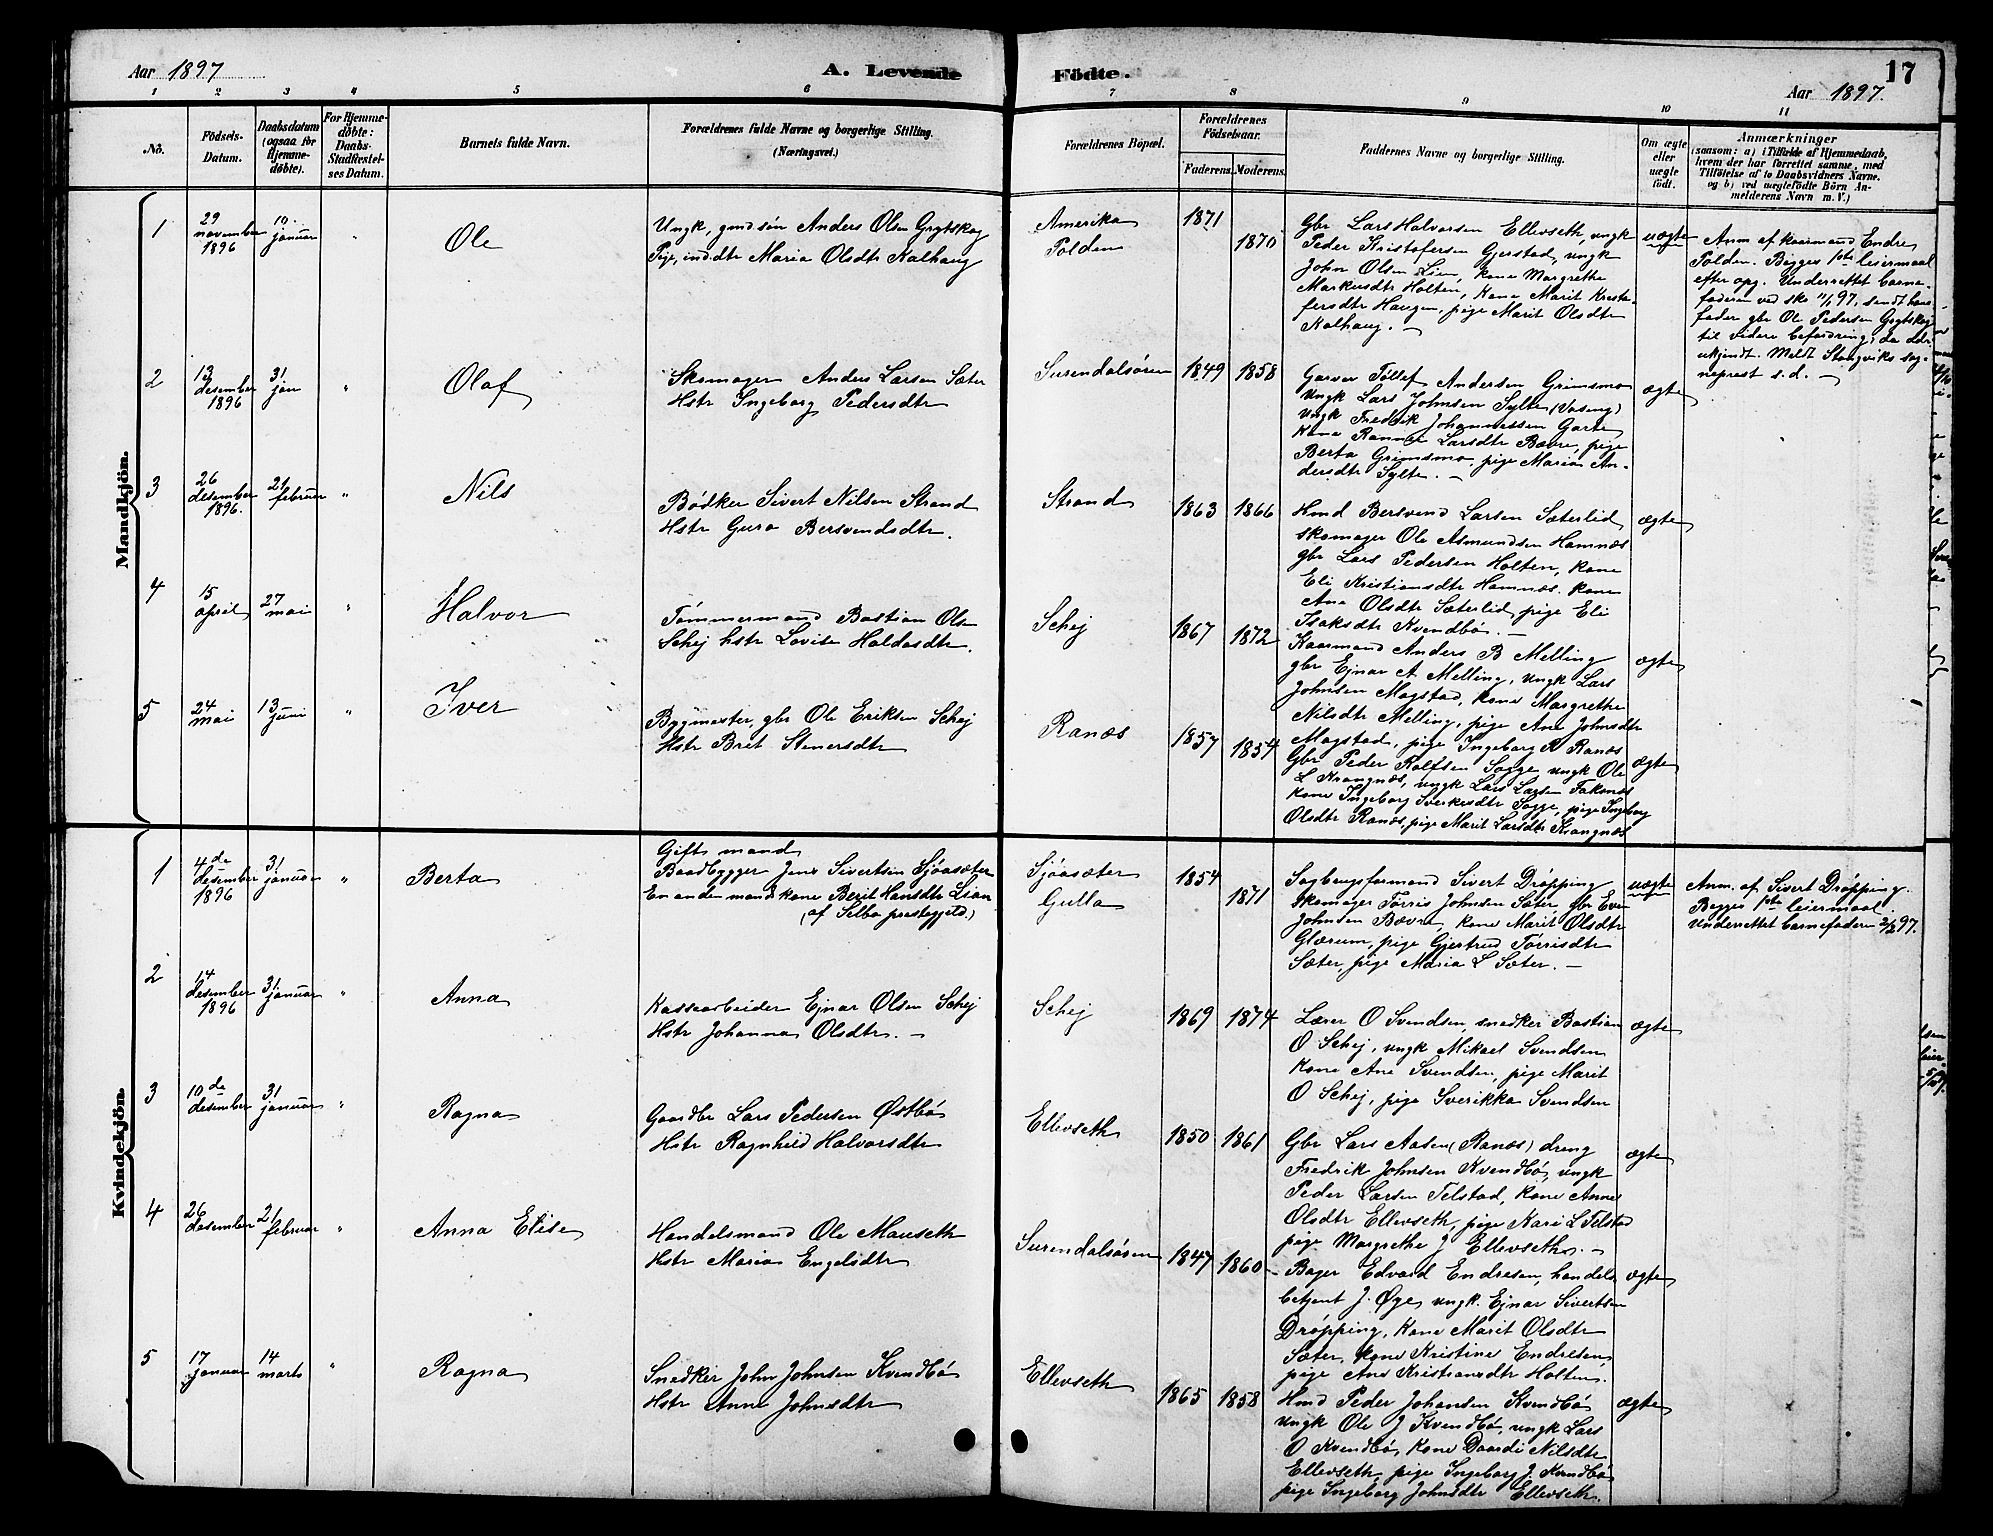 Aar 1897
A. Levende
Födte.
17
Aar 1897.
1 2 3 4 5 6 7 8 9 10 11
No.
Födsels-
Datum.
Daabsdatum
(ogsaa for
Hjemme-
döbte).
For Hjemme-
döbte:
Daabs-
Stadfæstel-
ses Datum.
Barnets fulde Navn.
Forældrenes fulde Navne og borgerlige Stilling.
(Næringsvei.)
Forældrenes Böpæl.
Forældrenes
Födselsaar.
Faderens. Moderens.
Faddernes Navne og borgerlige Stilling.
Om ægte
eller
uægte
födt.
Anmærkninger
(saasom: a) i Tilfælde af Hjemmedaab,
hvem der har forrettet samme, med
Tilföielse af to Daabsvidners Navne,
og b) ved uægtefödte Börn An-
melderens Navn m. V.)
Mandkjön.
1
29
november
1896
10
januar
"
Ole
Ungk, gmdsön Anders Olsen Grytskog
Pige, inddtr Maria Olsdtr Kalhaug
Amerika
Polden
1871
1870
Gbr Lars Halvorsen Ellevseth, ungk
Peder Kristofersen Gjerstad, ungk
John Olsen Lien, kone Margrethe
Markusdtr Holten, Kone Marit Kristo-
fersdtr Haugen, pige Marit Olsdtr
Kalhaug. -
uægte
Anm af kaarmand Endre
Polden. Begges 1ste leiermaal
efter opg. Underrettet barne-
faderen ved skr 11/1 97, sendt hans
fader gbr Ole Pedersen Grytskog
til videre befordring, da adr.
ukjendt. Meldt Stangviks sog-
neprest s.d. -
2
13
desember
1896
31
jan
"
Olaf
Skomager Anders Larsen Sæter
Hstr Ingeborg Pedersdtr
Surendalsøren
1849 1858
Garver Tøllef Andersen Grimsmo
Ungk Lars Johnsen Sylte (Vaseng)
Ungk Fredrik Johannessen Garte
Kone Ranne Larsdtr Bævre, pige
Berta Grimsmo pige Maria An-
dersdtr Sylte. -
ægte
3
26
desember
1896.
21
februar
"
Nils
Bødker Sivert Nilsen Strand
Hstr Guro Bersvendsdtr.
Strand
1863 1866
Hmd Bersvend Larsen Sæterlid
skomager Ole Asmundsen Hamnæs
gbr Lars Pedersen Holten, kone
Eli Kristiansdtr Hamnæs. kone
Ane Olsdtr Sæterlid, pige Eli
Isaksdtr Kvendbø. -
ægte
4
15
april
27
mai
"
Halvor
Tømmermand Bastian Olsen
Schej hstr Lovise Haldosdtr.
Schej
1867 1872
Kaarmand Anders B Melling
gbr Ejnar A Melling, ungk Lars
Johnsen Mogstad, kone Margrethe
Nilsdtr Melling, pige Ane Johnsdtr
Mogstad, pige Ingeborg R Ranæs
ægte
5
24
mai
13
juni
"
Iver
Bygmester, gbr Ole Eriksen Schej
Hstr Brit Stenersdtr
Ranæs
1857 1854
Gbr Peder Rolfsen Sogge ungk Ole
L Krangnæs, ungk Lars Larsen Taknæs
kone Ingeborg Sverkesdtr Sogge, pige Ingeborg
Olsdtr Ranæs, pige Marit Larsdtr Krangnæs
ægte
Kvindekjön.
1
4de
desember
1896
31
januar
"
Berta
Gift mand
Baadbygger Jens Sivertsen Sjöasæter
En anden mands kone Berit Hansdtr Lian
(af Selbo prestegjeld.)
Sjöasæter
Gulla
1854
1871
Sagbrugsformand Sivert Drøpping
Skomager Torris Johnsen Sæter gbr Even
Johnsen Bævre, kone Marit Olsdtr
Glærum, pige Gjertrud Torrisdtr
Sæter, pige Maria L Sæter. -
uægte
Anm. af Sivert Drøpping.
Begges 1ste leiermaal.
Underrettet barnefaderen 2/2 97.
2
14
desember
1896
31
januar
"
Anna
Kassearbeider Ejnar Olsen Schej
Hstr Johanna Olsdtr. -
Schej
1869 1874
Lærer O Svendsen, snedker Bastian
O Schej, ungk Mikael Svendsen
Kone Ane Svendsen, pige Marit
O Schej, pige Sverikka Svendsen
ægte
3
10de
desember
31
januar
"
Ragna
Gaardbr Lars Pedersen Østbø
Hstr Ragnhild Halvorsdtr
Ellevseth
1850 1861
Gbr Lars Aasen (Ranæs) dreng
Fredrik Johnsen Kvendbø, ungk
Peder Larsen Telstad, kone Anne
Olsdtr Ellevseth, pige Kari L Telstad
pige Margrethe J Ellevseth. -
ægte
4
26
desember
21
februar
"
Anna Elise
Handelsmand Ole Mauseth
Hstr Maria Engelsdtr
Surendalsøren
1847 1860
Bager Edvard Endresen, handels-
betjent J. Øye, ungk. Ejnar Sivertsen
Drøpping, kone Marit Olsdtr
Sæter, kone Kristine Endresen,
pige Ane Kristiansdtr Holten.
ægte
5
17
januar
14
marts
"
Ragna
Snedker John Johnsen Kvendbø
Hstr Anne Johnsdtr
Ellevseth
1865 1858
Hmd Peder Johansen Kvendbø
ungk Ole J Kvendbø, ungk Lars
O Kvendbø, kone Daardi Nilsdtr
Ellevseth, pige Ingeborg J. Kvendbø
pige Ingeborg Johnsdtr Ellevseth.
ægte